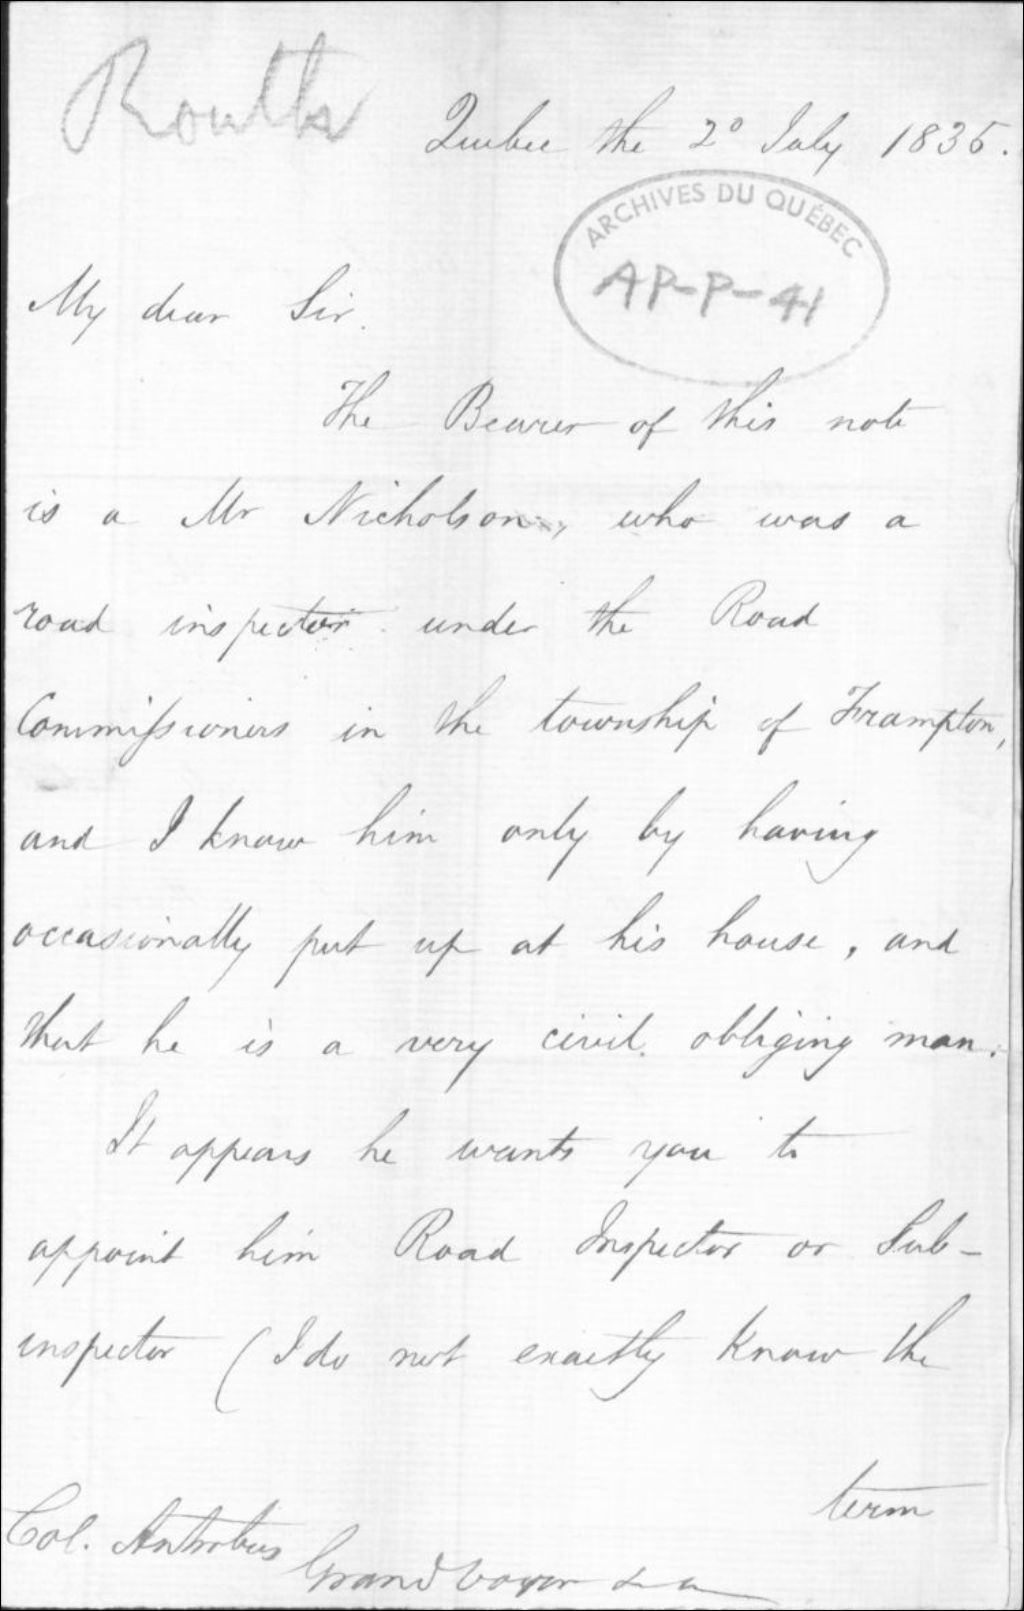 Routh
Quebec the 2º July 1835.
ARCHIVES DU QUÉBEC
AP-P-41
My dear Sir.
The Bearer of this note
is a Mr Nicholson, who was a
road inspector under the Road
Commissioners in the township of Frampton,
and I know him only by having
occasionally put up at his house, and
that he is a very civil obliging man.
It appears he wants you to
appoint him Road Inspector or Sub-
inspector (I do not exactly know the
term
Col. Antrobus
Grand Voyer